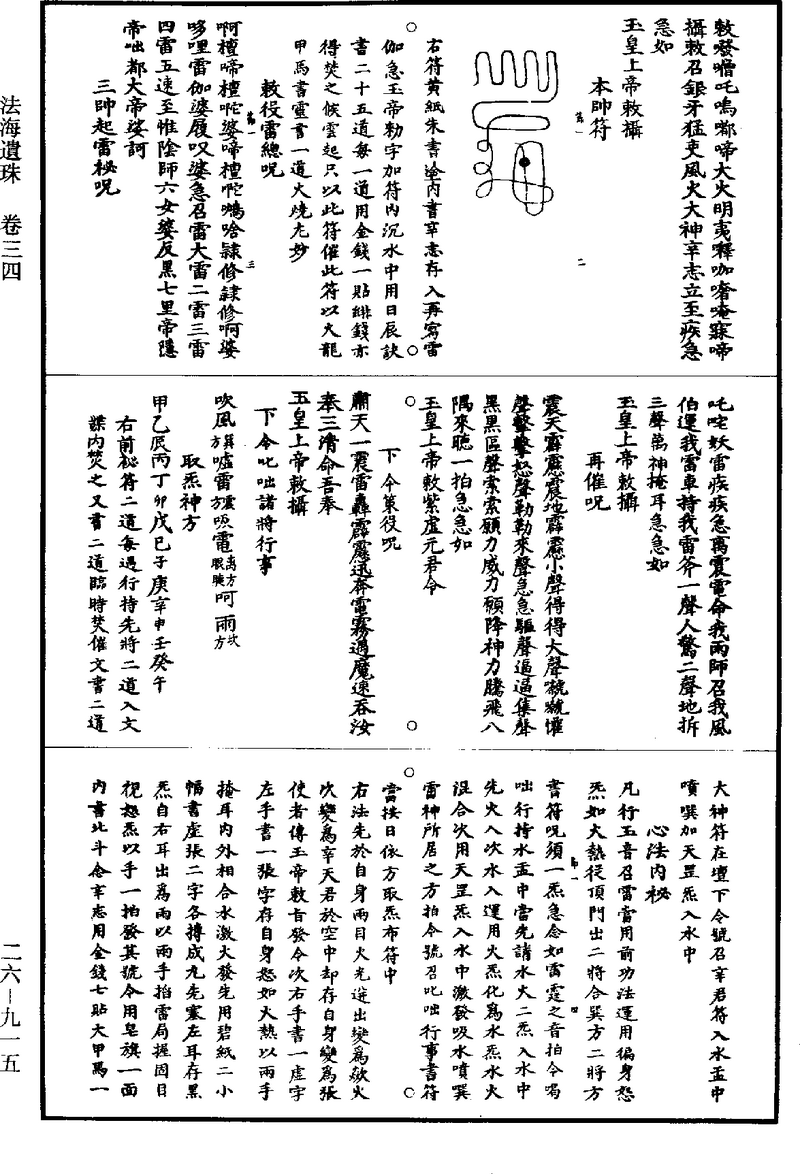 敕發噜吒嗚嘟啼大火明夷㗌咖嗜唵㗌啼
攝敕召銀牙猛吏風火大神辛志立至疾急
急如
玉皇上帝敕攝
本帥符
右符黃紙朱書塗內書辛志存入再寫雷
伽急玉帝勅字加符內沉水中用日辰訣
書二十五道每一道用金錢一貼緋錢亦
得焚之候雲起只以此符催此符以火龍
甲馬書靈書一道火燒尤妙
敕役雷總呪
啊檀啼檀啼檀哈隸修隸修啊婆
哆哩雷伽婆履叹婆急召雷大雷二雷三雷
四雷五速至惟陰師六女婆反黑七里帝隱
帝咄都大帝娑訶
三帥起雷秘呪
吒咤妖雷疾疾急离震電命我雨師召我風
伯運我雷車持我雷斧一聲人驚二聲地拆
三聲萬神掩耳急急如
玉皇上帝敕攝
再催呪
震天霹靂震地霹靂小聲得得大聲虩虩懼
聲擊擊怒聲勒勒來聲急急驅聲逼逼集聲
黑黑區聲索索願力威力願降神力騰飛八
隅來聽一拍急急如
玉皇上帝敕紫虛元君令
下令策役呪
肅天一震雷轟霹靂迅奔電霧遇魔速吞汝
奉三清命吾奉
玉皇上帝敕攝
下令叱咄諸將行事
吹風巽方噓雷震方吸電离方眼睫呵雨坎方
取炁神方
甲乙辰丙丁卯戊巳子庚辛申壬癸午
右前祕符二道每遇行持先將二道入文
牒內焚之又書二道臨時焚催文書二道
大神符在壇下令號召辛君符入水盂中
噴噀加天罡炁入水中
心法內祕
凡行玉音召雷當用前功法運用徧身怒
炁如火熱從頂門出二將合巽方二將方
書符呪須一炁急念如雷霆之音拍令喝
咄行持水盂中當先諸水火二炁入水中
先火入次水入運用火炁化爲水炁水火
混合次用天罡炁入水中激發吸水噴噀
雷神所居之方拍令號召叱咄行事書符
當按日依方取炁布符中
右法先於自身兩目火光迸出變爲歘火
次變爲辛天君於空中却存自身變爲張
使者傳玉帝敕旨發令次右手書一虛字
左手書一張字存自身怒如火熱以兩手
掩耳內外相合水激火發先用碧紙二小
幅書虛張二字各摶成丸先塞左耳存黑
炁自右耳出爲雨以兩手掐雷局握固目
視怒炁以手一拍發其號令用皂旗一面
內書北斗念辛志用金錢七貼大甲馬一
法海遺珠 卷三四
二六—九一五